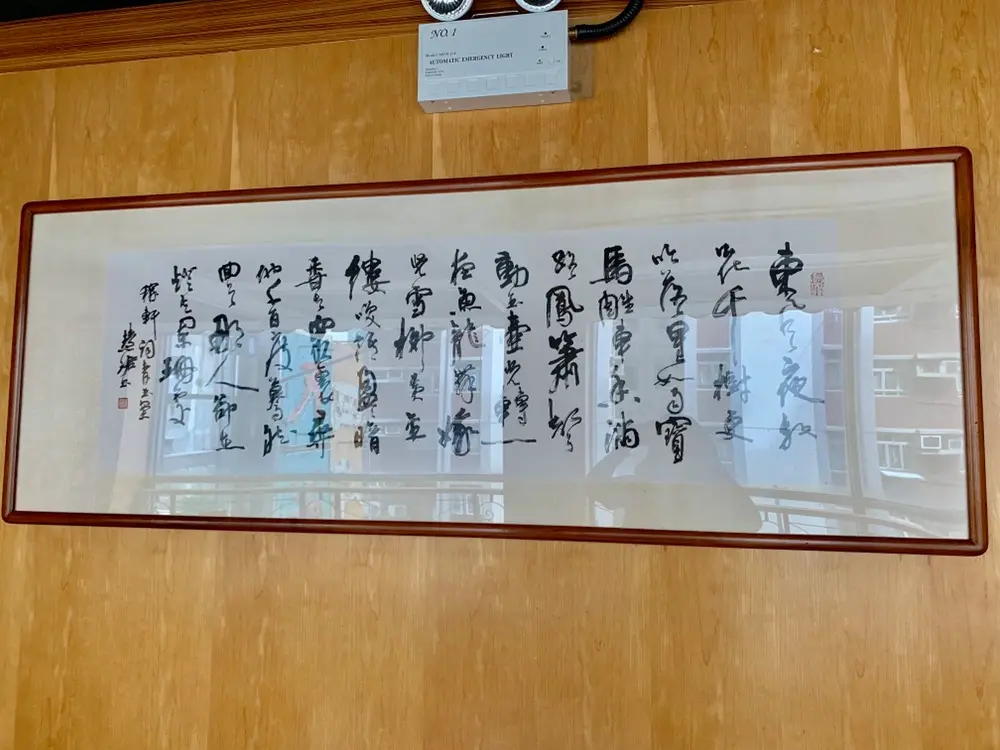 NO. 1
AUTOMATIC EMERGENCY LIGHT
東風夜放
花千樹更
吹落星如雨寶
馬雕車香滿
路鳳簫聲
動玉壺光轉一
夜魚龍舞蛾
兒雪柳黃金
縷笑語盈盈暗
香去眾裏尋
他千百度驀然
回首那人卻在
燈火闌珊處
稼軒詞青玉案